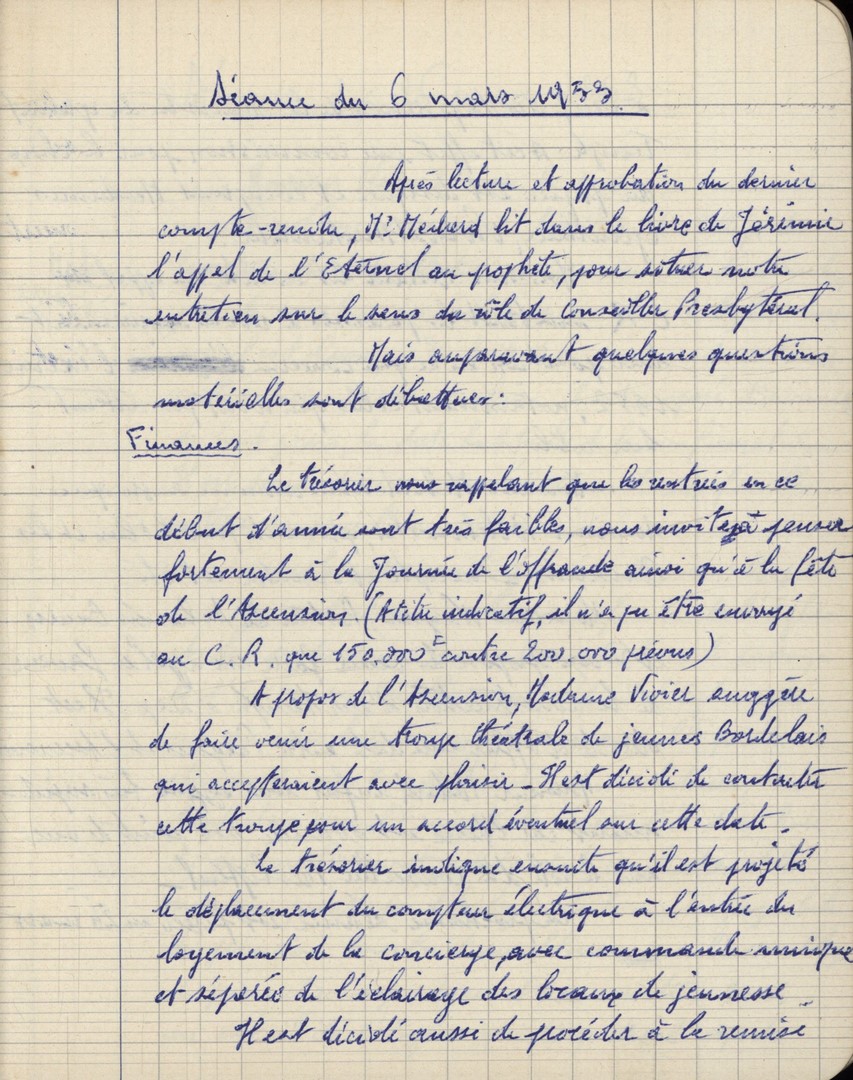 Séance du 6 mars 1953.
Après lecture et approbation du dernier
compte-rendu, Mr Médard lit dans le livre de Jérémie
l'appel de l'Eternel au prophète, pour situer notre
entretien sur le sens du rôle de Conseiller Presbytéral.
Mais auparavant quelques questions
matérielles sont débattues :
Finances.
Le trésorier nous rappelant que les rentrées en ce
début d'année sont très faibles, nous invite à penser
fortement à la Journée de l'offrande ainsi qu'à la fête
de l'Ascension. (A titre indicatif, il n'a pu être envoyé
au C.R. que 150.000F contre 200.000 prévus)
A propos de l'Ascension, Madame Vivier suggère
de faire venir une troupe théâtrale de jeunes Bordelais
qui accepteraient avec plaisir - Il est décidé de contacter
cette troupe pour un accord éventuel sur cette date.
Le trésorier indique ensuite qu'il est projeté
le déplacement du compteur électrique à l'entrée du
logement de la concierge, avec commande unique
et séparée de l'éclairage des locaux de jeunesse.
Il est décidé aussi de procéder à la remise